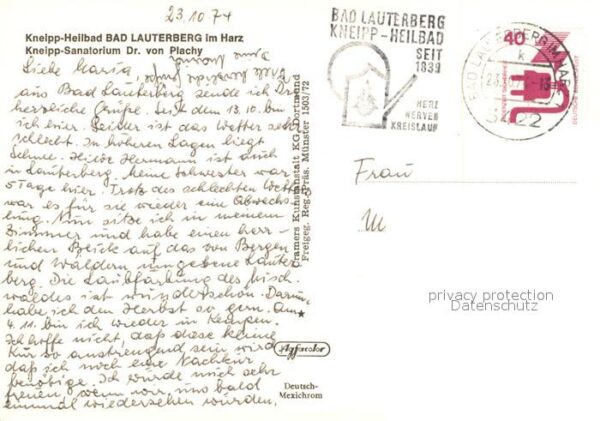 23.10.74
Kneipp-Heilbad BAD LAUTERBERG im Harz
Kneipp-Sanatorium Dr. von Plachy
Liebe Maria,
aus Bad Lauterberg sende ich Dir
herzliche Grüße. Seit dem 13.10. bin
ich hier. Leider ist das Wetter sehr
schlecht. In höheren Lagen liegt
Schnee. Hermann ist auch
in Lauterberg, seine Schwester war
5 Tage hier. Trotz des schlechten Wetters
war es für sie wieder eine Abwechs-
lung. Nun sitze ich in meinem
Zimmer und habe einen herr-
lichen Blick auf das von Bergen
und Wäldern umgebene Lauter-
berg. Die Laubfärbung des Misch-
waldes ist wunderschön. Darum
habe ich den Herbst so gern. Am
4.11. bin ich wieder in Kempen.
Ich hoffe nicht, daß diese kleine
Kur so anstrengend sein wird,
daß ich noch eine Nachkur
benötige. Ich würde mich sehr
freuen, wenn wir uns bald
einmal wiedersehen würden.
Cramers Kunstanstalt KG, Dortmund
Freigeg. Reg.-Präs. Münster 1503/72
Deutsch-
Mexichrom
BAD LAUTERBERG
KNEIPP-HEILBAD
SEIT
1839
HERZ
NERVEN
KREISLAUF
BAD LAUTERBERG IM HARZ
3422
40
Frau
M
privacy protection
Datenschutz